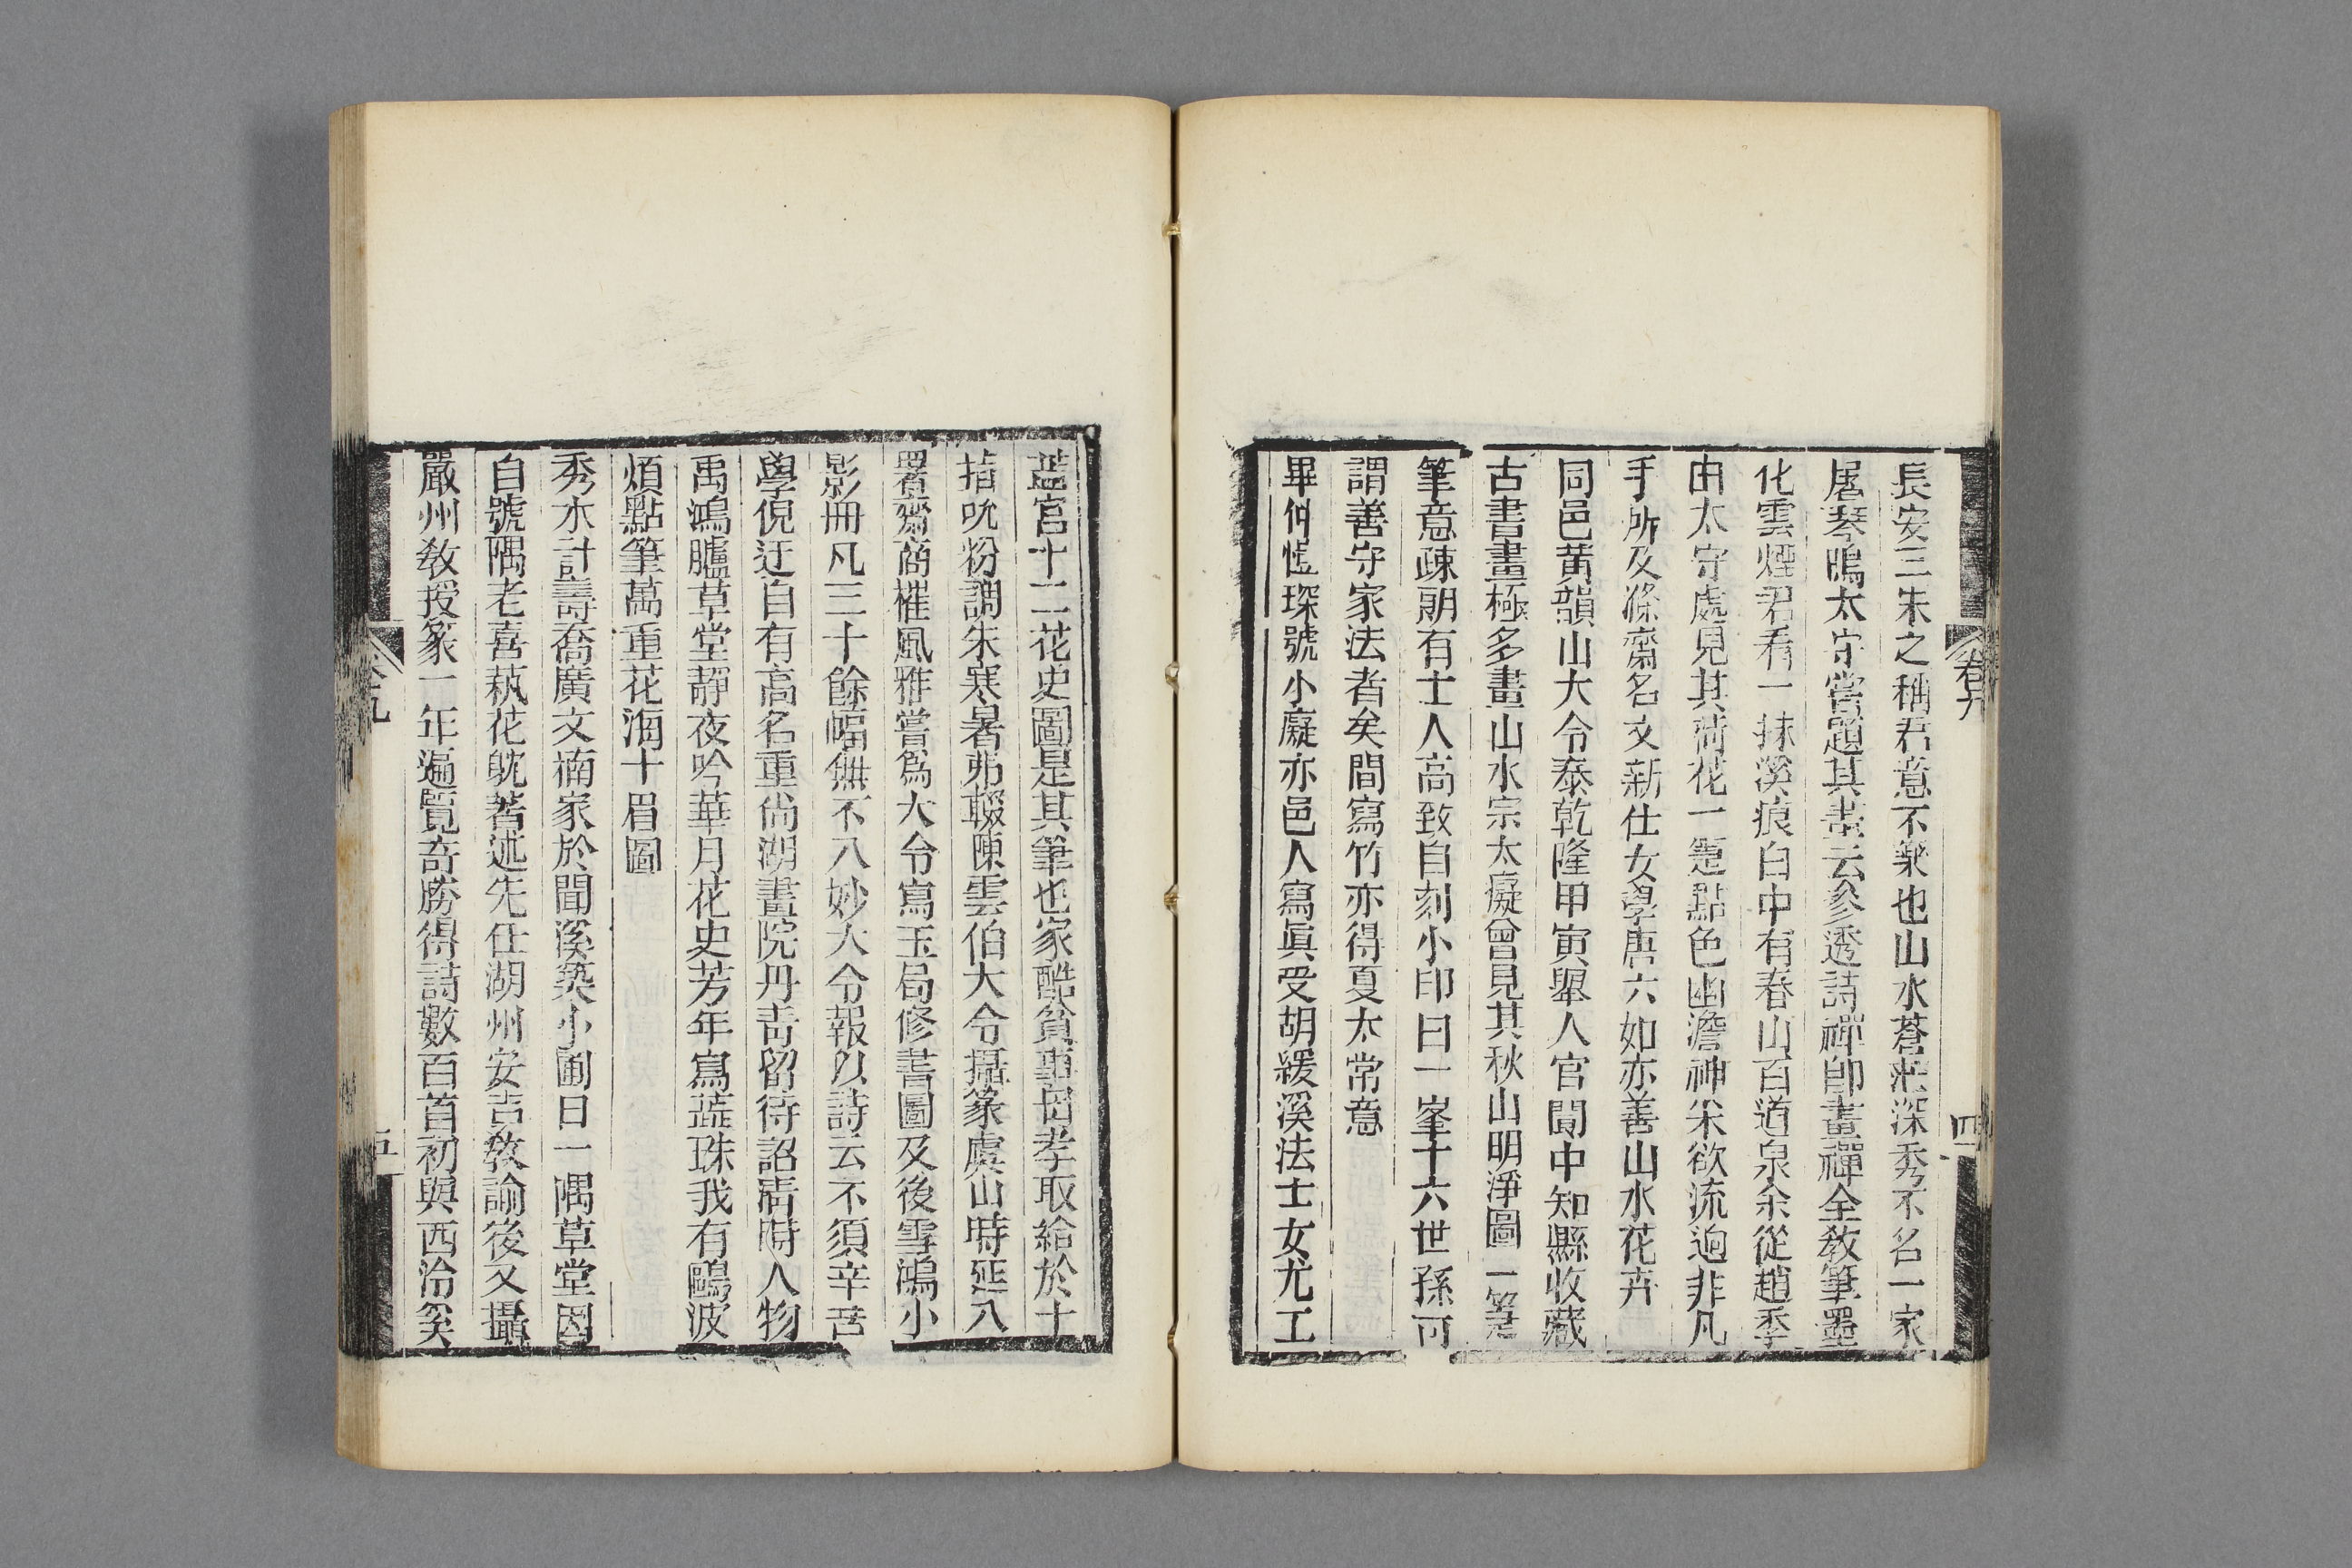 卷九
四
長安三朱之稱君意不樂也山水蒼茫深秀不名一家
屠琴鳴太守嘗題其畫云參透詩禪卽畫禪全敎筆墨
化雲煙君看一抹溪痕白中有春山百道泉余從趙季
由太守處見其荷花一箑點色幽澹神采欲流逈非凡
手所及滌齋名文新仕女學唐六如亦善山水花卉
同邑黃韻山大令泰乾隆甲寅舉人官閩中知縣收藏
古書畫極多畫山水宗太癡曾見其秋山明淨圖一箑
筆意疎朗有士人高致自刻小印曰一峯十六世孫可
謂善守家法者矣間寫竹亦得夏太常意
畢仲愷琛號小癡亦邑人寫眞受胡緩溪法士女尤工
蕋宮十二花史圖是其筆也家酷貧事母孝取給於十
指吮粉調朱寒暑弗輟陳雲伯大令攝篆虞山時延入
署齋商榷風雅嘗爲大令寫玉局修書圖及後雪鴻小
影冊凡三十餘幅無不入妙大令報以詩云不須辛苦
學倪迂自有高名重尙湖畫院丹青留待詔淸時人物
禹鴻臚草堂靜夜吟華月花史芳年寫蕋珠我有鷗波
煩點筆萬重花海十眉圖
秀水計壽喬廣文楠家於聞溪築小圃曰一隅草堂因
自號隅老喜蓺花躭著述先任湖州安吉敎諭後又攝
嚴州敎授篆一年遍覽奇勝得詩數百首初與西泠奚
九
五